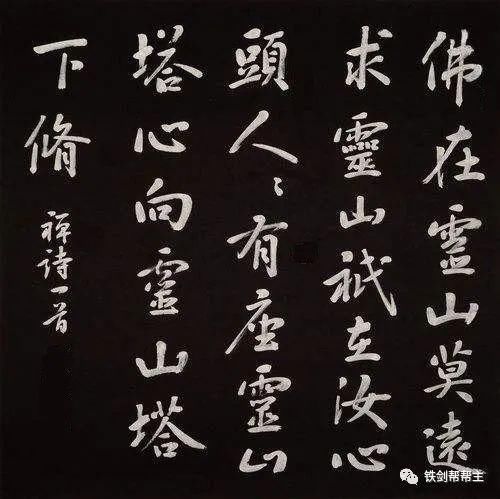 佛在靈山莫遠
求靈山祇在汝心
頭人〻有座靈山
塔心向靈山塔
下脩
禅诗一首
铁剑帮帮主